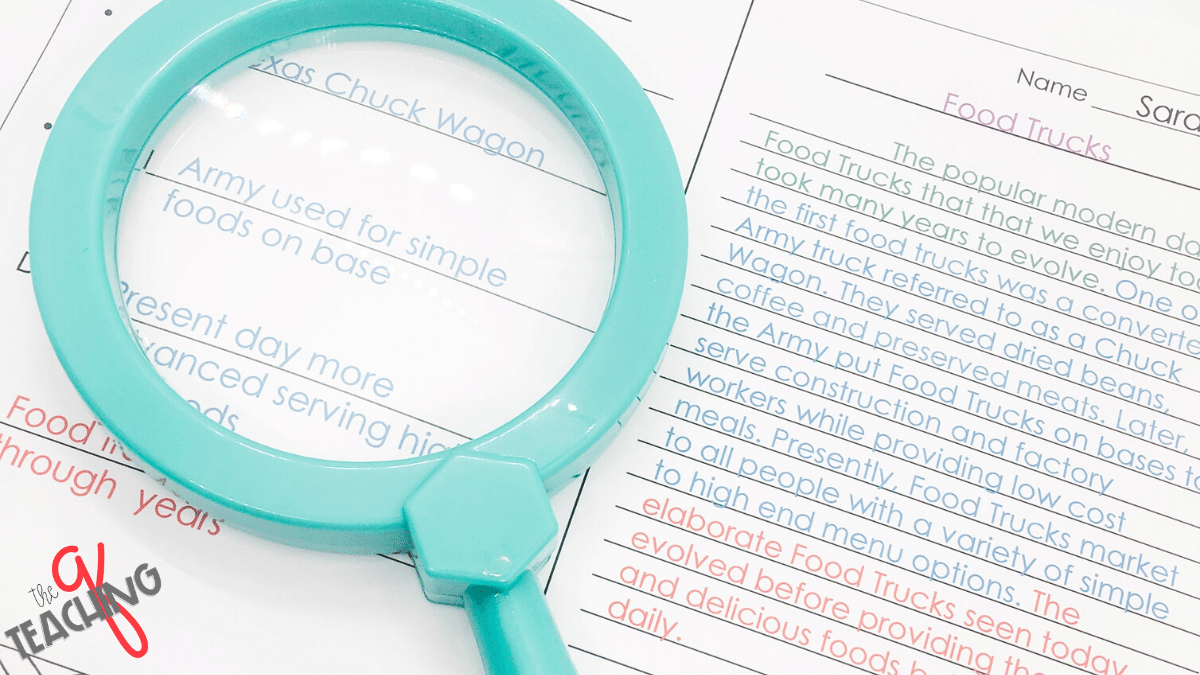 exas Chuck Wagon
Army used for simple
foods on base
present day more
anced serving hig
ods
Food
through years
the
TEACHING
Name Sara
Food Trucks
The popular modern da
Food Trucks that that we enjoy to
took many years to evolve. One o
the first food trucks was a converte
Army truck referred to as a Chuck
Wagon. They served dried beans,
coffee and preserved meats. Later,
the Army put Food Trucks on bases to
serve construction and factory
workers while providing low cost
meals. Presently, Food Trucks market
to all people with a variety of simple
to high end menu options. The
elaborate Food Trucks seen today
evolved before providing the
and delicious foods
daily.